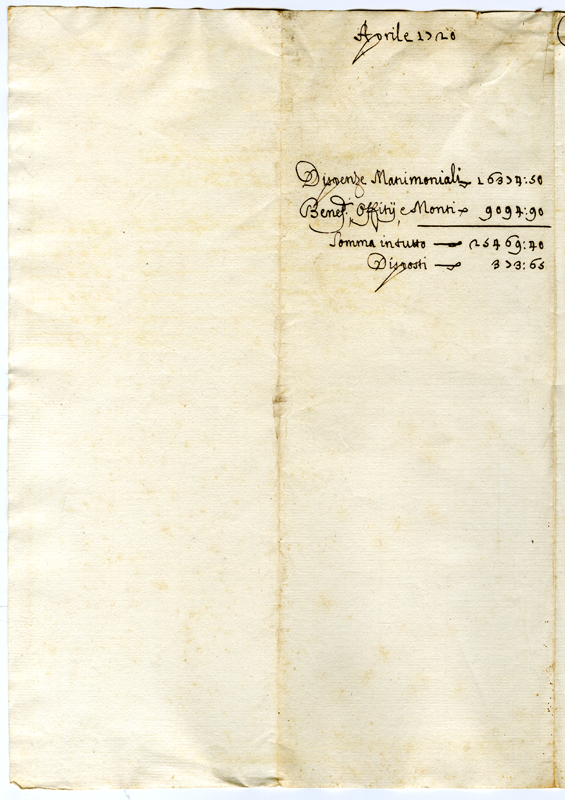 Aprile 1720
Dispenze Matrimoniali 16374:50
Benef. Offitij e Monti 9094:90
Somma in tutto — 25469:40
Disposti — 373:65